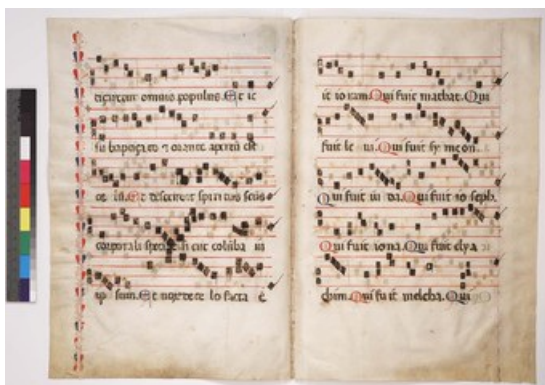 omnis populus. Et ie
su baptizato & orante apertu
Et descendit spiritus scūs
corporali specie cut coluba in
ip sum. Et vox de ce lo facta ē
it io ram. Qui fuit mathat. Qui
fuit le ui. Qui fuit sy me on.
Qui fuit iu da. Qui fuit io seph.
Qui fuit iona. Qui fuit elya
chim. Qui fu it melcha. Qui